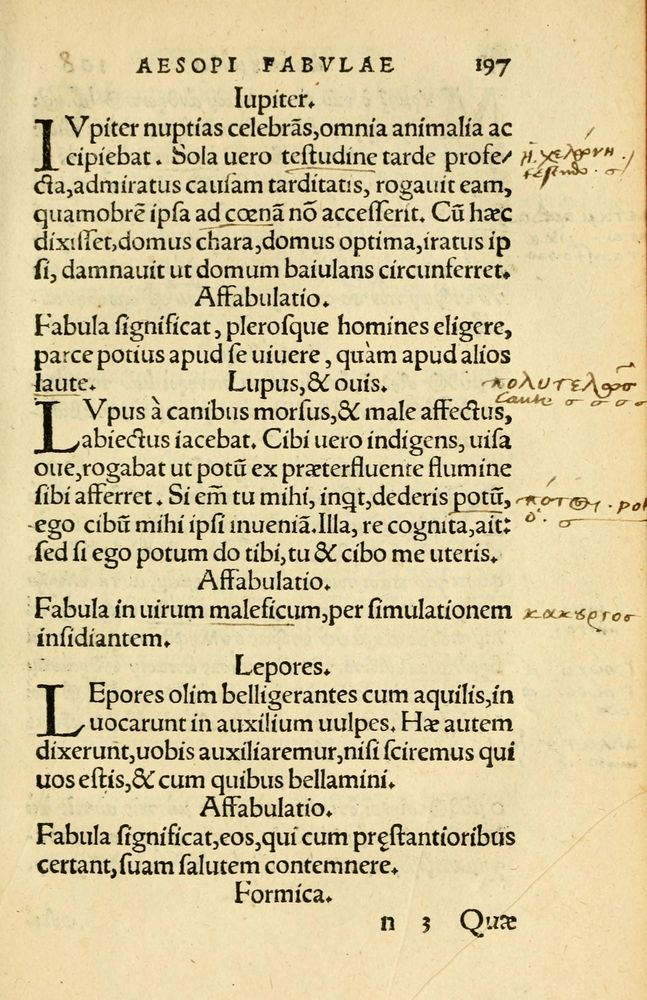 AESOPI FABVLAE 197
Iupiter.
IVpiter nuptias celebrãs,omnia animalia ac
cipiebat. Sola uero teſtudine tarde profe/
cta,admiratus cauſam tarditatis, rogauit eam,
quamobrẽ ipſa ad cœnã nõ acceſſerit. Cũ hæc
dixiſſet,domus chara,domus optima,iratus ip
ſi, damnauit ut domum baiulans circunferret.
Affabulatio.
Fabula ſignificat, pleroſque homines eligere,
parce potius apud ſe uiuere, quàm apud alios
laute. Lupus,& ouis.
LVpus à canibus morſus,& male affectus,
abiectus iacebat. Cibi uero indigens, uiſa
oue,rogabat ut potũ ex præterfluente flumine
ſibi afferret. Si em̃ tu mihi, inqt,dederis potũ,
ego cibũ mihi ipſi inueniã.Illa, re cognita,ait:
ſed ſi ego potum do tibi,tu & cibo me uteris.
Affabulatio.
Fabula in uirum maleficum,per ſimulationem
inſidiantem.
Lepores.
LEpores olim belligerantes cum aquilis,in
uocarunt in auxilium uulpes. Hæ autem
dixerunt,uobis auxiliaremur,niſi ſciremus qui
uos eſtis,& cum quibus bellamini.
Affabulatio.
Fabula ſignificat,eos,qui cum pręſtantioribus
certant,ſuam ſalutem contemnere.
Formica.
n 3 Quæ
ἡ χελώνη
teſtudo